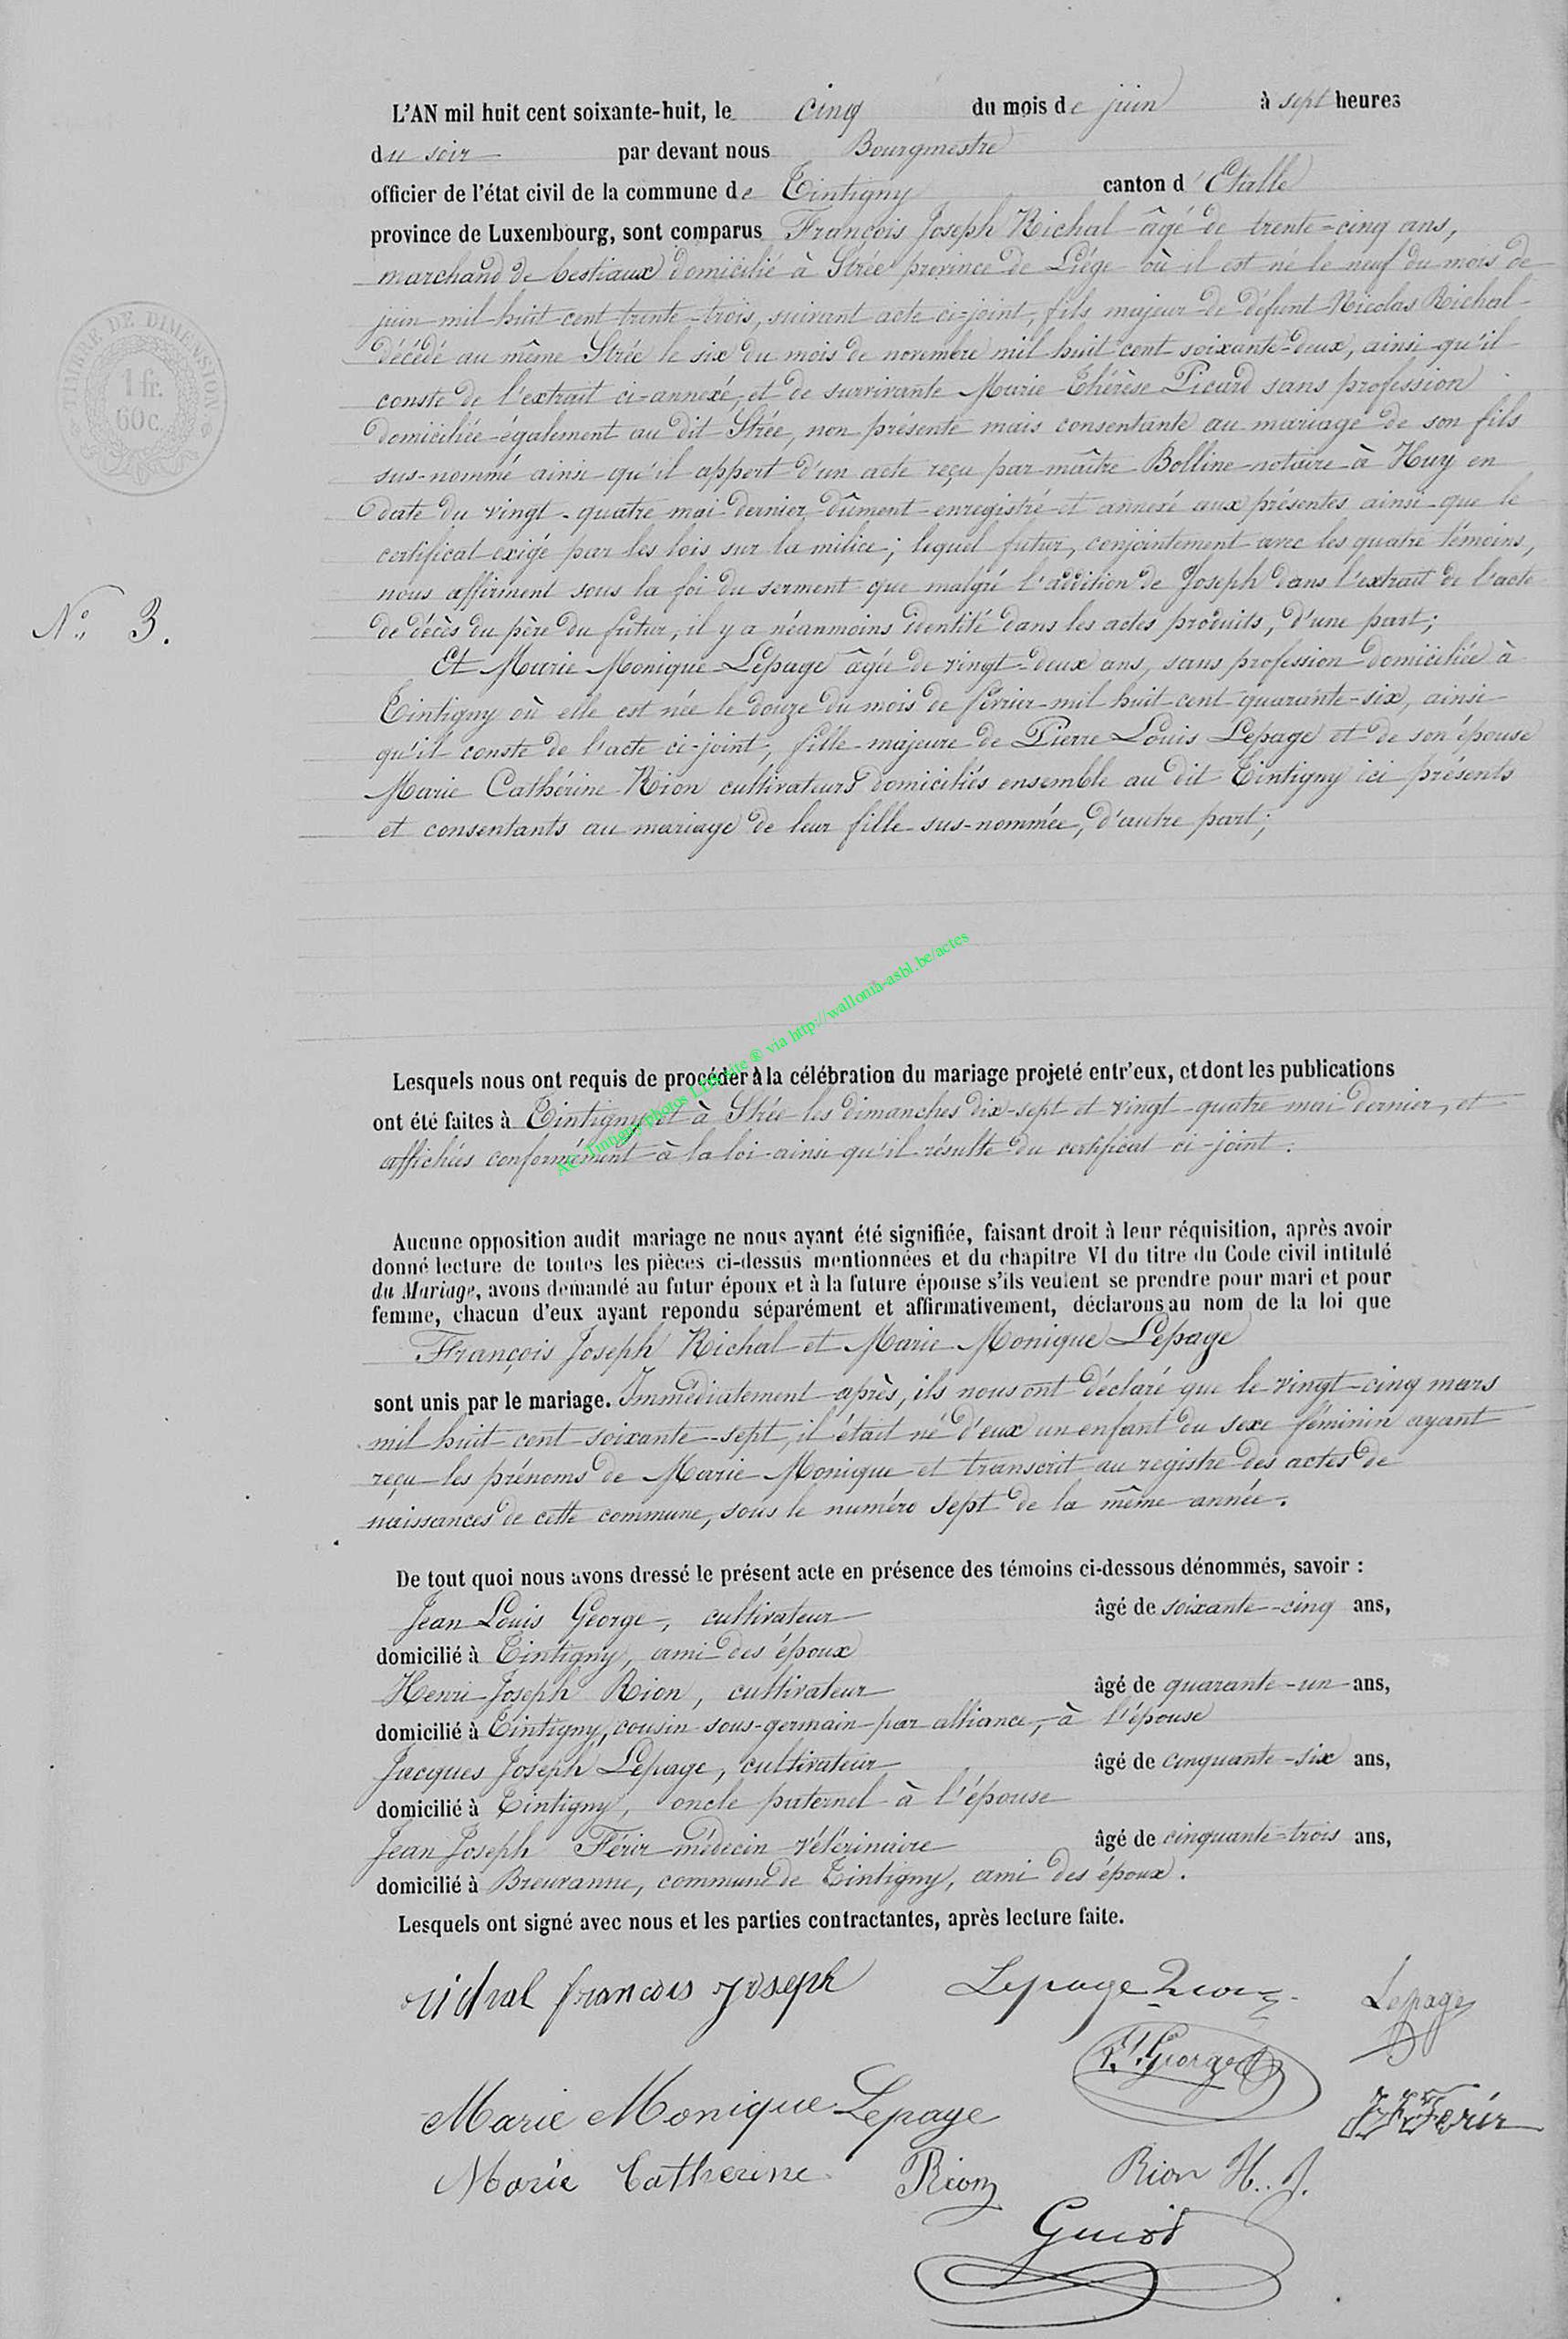 L'AN mil huit cent soixante-huit, le cinq du mois de juin à sept heures
du soir par devant nous Bourgmestre
officier de l'état civil de la commune de Tintigny canton d'Etalle
province de Luxembourg, sont comparus François Joseph Richal âgé de trente-cinq ans,
marchand de bestiaux domicilié à Strée province de Liége où il est né le neuf du mois de
juin mil huit cent trente-trois, suivant acte ci-joint, fils majeur de défunt Nicolas Richal
décédé au même Strée le six du mois de novembre mil huit cent soixante-deux, ainsi qu'il
TIMBRE DE DIMENSION
1 fr.
60c.
conste de l'extrait ci-annexé, et de survivante Marie Thérèse Picard sans profession
domiciliée également au dit Strée, non présente mais consentante au mariage de son fils
sus-nommé ainsi qu'il appert d'un acte reçu par maître Bolline notaire à Huy en
date du vingt-quatre mai dernier dûment enregistré et annexé aux présentes ainsi que le
certificat exigé par les lois sur la milice; lequel futur, conjointement avec les quatre témoins,
nous affirment sous la foi du serment que malgré l'addition de Joseph dans l'extrait de l'acte
No. 3.
de décès du père du futur, il y a néanmoins identité dans les actes produits, d'une part;
Et Marie Monique Lepage âgée de vingt-deux ans, sans profession domiciliée à
Tintigny où elle est née le douze du mois de février mil huit cent quarante-six, ainsi
qu'il conste de l'acte ci-joint, fille majeure de Pierre Louis Lepage et de son épouse
Marie Cathérine Rion cultivateurs domiciliés ensemble au dit Tintigny ici présents
et consentants au mariage de leur fille sus-nommée, d'autre part;
Lesquels nous ont requis de procéder à la célébration du mariage projeté entr'eux, et dont les publications
ont été faites à Tintigny et à Strée les dimanches dix-sept et vingt-quatre mai dernier, et
affichées conformément à la loi ainsi qu'il résulte du certificat ci-joint.
via http://wallonia-asbl.be/actes
Aucune opposition audit mariage ne nous ayant été signifiée, faisant droit à leur réquisition, après avoir
donné lecture de toutes les pièces ci-dessus mentionnées et du chapitre VI du titre du Code civil intitulé
du Mariage, avons demandé au futur époux et à la future épouse s'ils veulent se prendre pour mari et pour
femme, chacun d'eux ayant repondu séparément et affirmativement, déclarons au nom de la loi que
François Joseph Richal et Marie Monique Lepage
sont unis par le mariage. Immédiatement après, ils nous ont déclaré que le vingt-cinq mars
mil huit cent soixante-sept, il était né d'eux un enfant du sexe féminin ayant
reçu les prénoms de Marie Monique et transcrit au registre des actes de
naissances de cette commune, sous le numéro sept de la même année.
De tout quoi nous avons dressé le présent acte en présence des témoins ci-dessous dénommés, savoir :
Jean Louis George, cultivateur âgé de soixante-cinq ans,
domicilié à Tintigny, ami des époux
Henri Joseph Rion, cultivateur âgé de quarante-un ans,
domicilié à Tintigny, cousin sous-germain par alliance, à l'épouse
Jacques Joseph Lepage, cultivateur âgé de cinquante-six ans,
domicilié à Tintigny, oncle paternel à l'épouse
Jean Joseph Férir médecin vétérinaire âgé de cinquante-trois ans,
domicilié à Breuvanne, commune de Tintigny, ami des époux.
Lesquels ont signé avec nous et les parties contractantes, après lecture faite.
richal francois joseph Lepage Rion Lepage
George
Marie Monique Lepage Ferir
Marie Catherine Rion Rion H. J.
Guiot